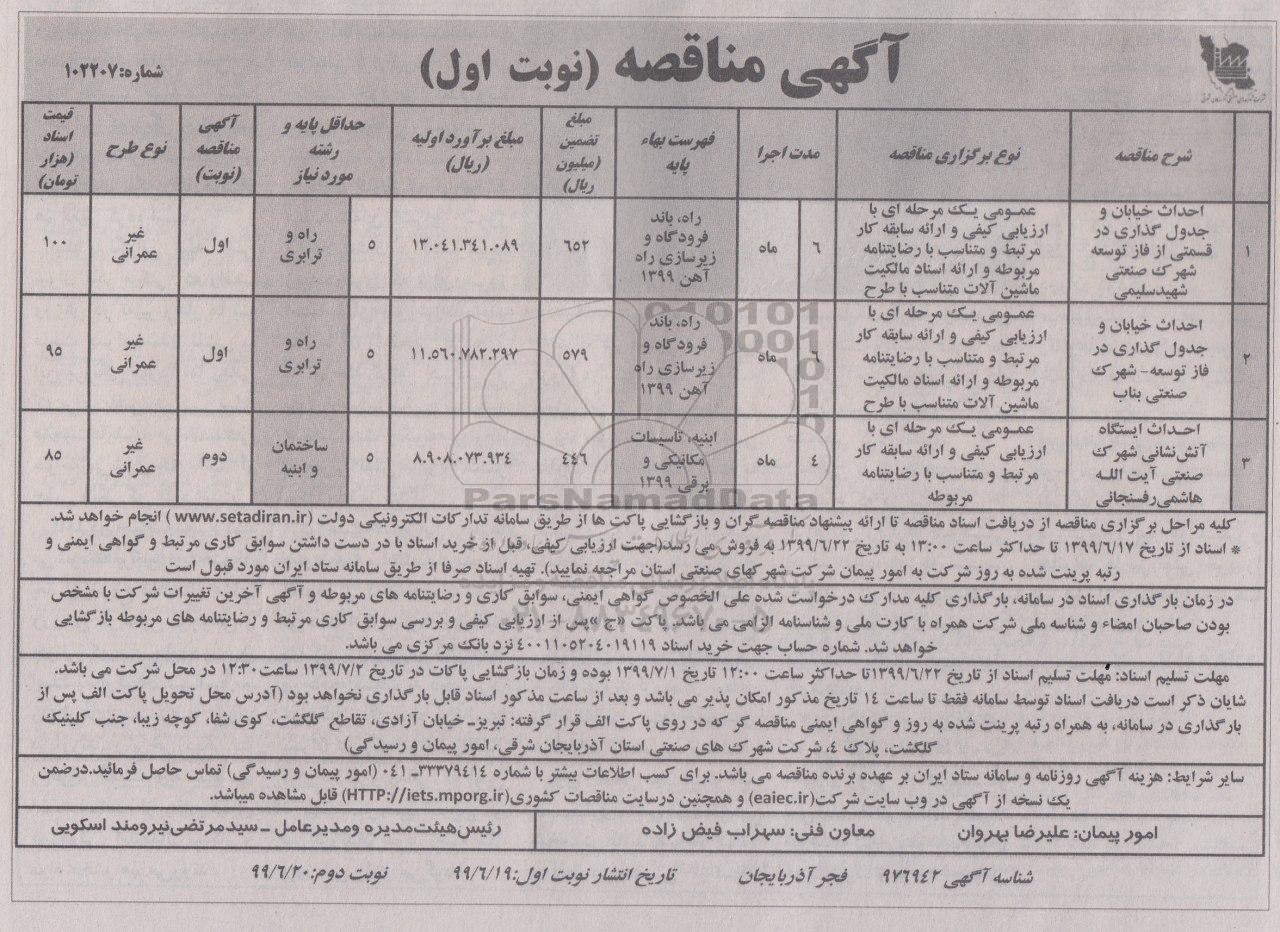 آگهی مناقصه (نوبت اول)
شماره: ۱۰۲۲۰۷
شرح مناقصه
نوع برگزاری مناقصه
مدت اجرا
فهرست بهاء پایه
مبلغ تضمین (میلیون ریال)
مبلغ برآورد اولیه (ریال)
حداقل پایه و رشته مورد نیاز
آگهی مناقصه (نوبت)
نوع طرح
قیمت اسناد (هزار تومان)
۱
احداث خیابان و
جدول گذاری در
قسمتی از فاز توسعه
شهرک صنعتی
شهیدسلیمی
عمومی یک مرحله ای با
ارزیابی کیفی و ارائه سابقه کار
مرتبط و متناسب با رضایتنامه
مربوطه و ارائه اسناد مالکیت
ماشین آلات متناسب با طرح
۶
ماه
راه، باند
فرودگاه و
زیرسازی راه
آهن ۱۳۹۹
۶۵۲
۱۳.۰۴۱.۳۴۱.۰۸۹
۵
راه و
ترابری
اول
غیر
عمرانی
۱۰۰
۲
احداث خیابان و
جدول گذاری در
فاز توسعه- شهرک
صنعتی بناب
عمومی یک مرحله ای با
ارزیابی کیفی و ارائه سابقه کار
مرتبط و متناسب با رضایتنامه
مربوطه و ارائه اسناد مالکیت
ماشین آلات متناسب با طرح
۶
ماه
راه، باند
فرودگاه و
زیرسازی راه
آهن ۱۳۹۹
۵۷۹
۱۱.۵۶۰.۷۸۲.۲۹۷
۵
راه و
ترابری
اول
غیر
عمرانی
۹۵
۳
احداث ایستگاه
آتش‌نشانی شهرک
صنعتی آیت الله
هاشمی‌رفسنجانی
عمومی یک مرحله ای با
ارزیابی کیفی و ارائه سابقه کار
مرتبط و متناسب با رضایتنامه
مربوطه
۴
ماه
ابنیه، تاسیسات
مکانیکی و
برقی ۱۳۹۹
۴۴۶
۸.۹۰۸.۰۷۳.۹۳۴
۵
ساختمان
و ابنیه
دوم
غیر
عمرانی
۸۵
کلیه مراحل برگزاری مناقصه از دریافت اسناد مناقصه تا ارائه پیشنهاد مناقصه گران و بازگشایی پاکت ها از طریق سامانه تدارکات الکترونیکی دولت (www.setadiran.ir ) انجام خواهد شد.
* اسناد از تاریخ ۱۳۹۹/۶/۱۷ تا حداکثر ساعت ۱۳:۰۰ به تاریخ ۱۳۹۹/۶/۲۲ به فروش می رسد(جهت ارزیابی کیفی، قبل از خرید اسناد با در دست داشتن سوابق کاری مرتبط و گواهی ایمنی و
رتبه پرینت شده به روز شرکت به امور پیمان شرکت شهرکهای صنعتی استان مراجعه نمایید). تهیه اسناد صرفا از طریق سامانه ستاد ایران مورد قبول است
در زمان بارگذاری اسناد در سامانه، بارگذاری کلیه مدارک درخواست شده علی الخصوص گواهی ایمنی، سوابق کاری و رضایتنامه های مربوطه و آگهی آخرین تغییرات شرکت با مشخص
بودن صاحبان امضاء و شناسه ملی شرکت همراه با کارت ملی و شناسنامه الزامی می باشد. پاکت «ج »پس از ارزیابی کیفی و بررسی سوابق کاری مرتبط و رضایتنامه های مربوطه بازگشایی
خواهد شد. شماره حساب جهت خرید اسناد ۴۰۰۱۱۰۵۲۰۴۰۱۹۱۱۹ نزد بانک مرکزی می باشد.
مهلت تسلیم اسناد: مهلت تسلیم اسناد از تاریخ ۱۳۹۹/۶/۲۲تا حداکثر ساعت ۱۲:۰۰ تاریخ ۱۳۹۹/۷/۱ بوده و زمان بازگشایی پاکات در تاریخ ۱۳۹۹/۷/۲ ساعت۱۲:۳۰ در محل شرکت می باشد.
شایان ذکر است دریافت اسناد توسط سامانه فقط تا ساعت ۱۴ تاریخ مذکور امکان پذیر می باشد و بعد از ساعت مذکور اسناد قابل بارگذاری نخواهد بود (آدرس محل تحویل پاکت الف پس از
بارگذاری در سامانه، به همراه رتبه پرینت شده به روز و گواهی ایمنی مناقصه گر که در روی پاکت الف قرار گرفته: تبریز- خیابان آزادی، تقاطع گلگشت، کوی شفا، کوچه زیبا، جنب کلینیک
گلگشت، پلاک ۴، شرکت شهرک های صنعتی استان آذربایجان شرقی، امور پیمان و رسیدگی)
سایر شرایط: هزینه آگهی روزنامه و سامانه ستاد ایران بر عهده برنده مناقصه می باشد. برای کسب اطلاعات بیشتر با شماره ۳۳۳۷۹۴۱۴-۰۴۱ (امور پیمان و رسیدگی) تماس حاصل فرمائید.درضمن
یک نسخه از آگهی در وب سایت شرکت(eaiec.ir) و همچنین درسایت مناقصات کشوری(HTTP://iets.mporg.ir) قابل مشاهده میباشد.
امور پیمان: علیرضا بهروان
معاون فنی: سهراب فیض زاده
رئیس‌هیئت‌مدیره ومدیرعامل - سیدمرتضی‌نیرومند اسکویی
شناسه آگهی ۹۷۶۹۴۲
فجر آذربایجان
تاریخ انتشار نوبت اول:۹۹/۶/۱۹
نوبت دوم:۹۹/۶/۲۰
ParsNamadData